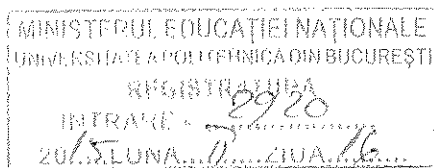 MINISTERUL EDUCAȚIEI NAȚIONALE
UNIVERSITATEA POLITEHNICA DIN BUCUREȘTI
REGISTRATURA
INTRARE - 2920
2015 LUNA II ZIUA 16